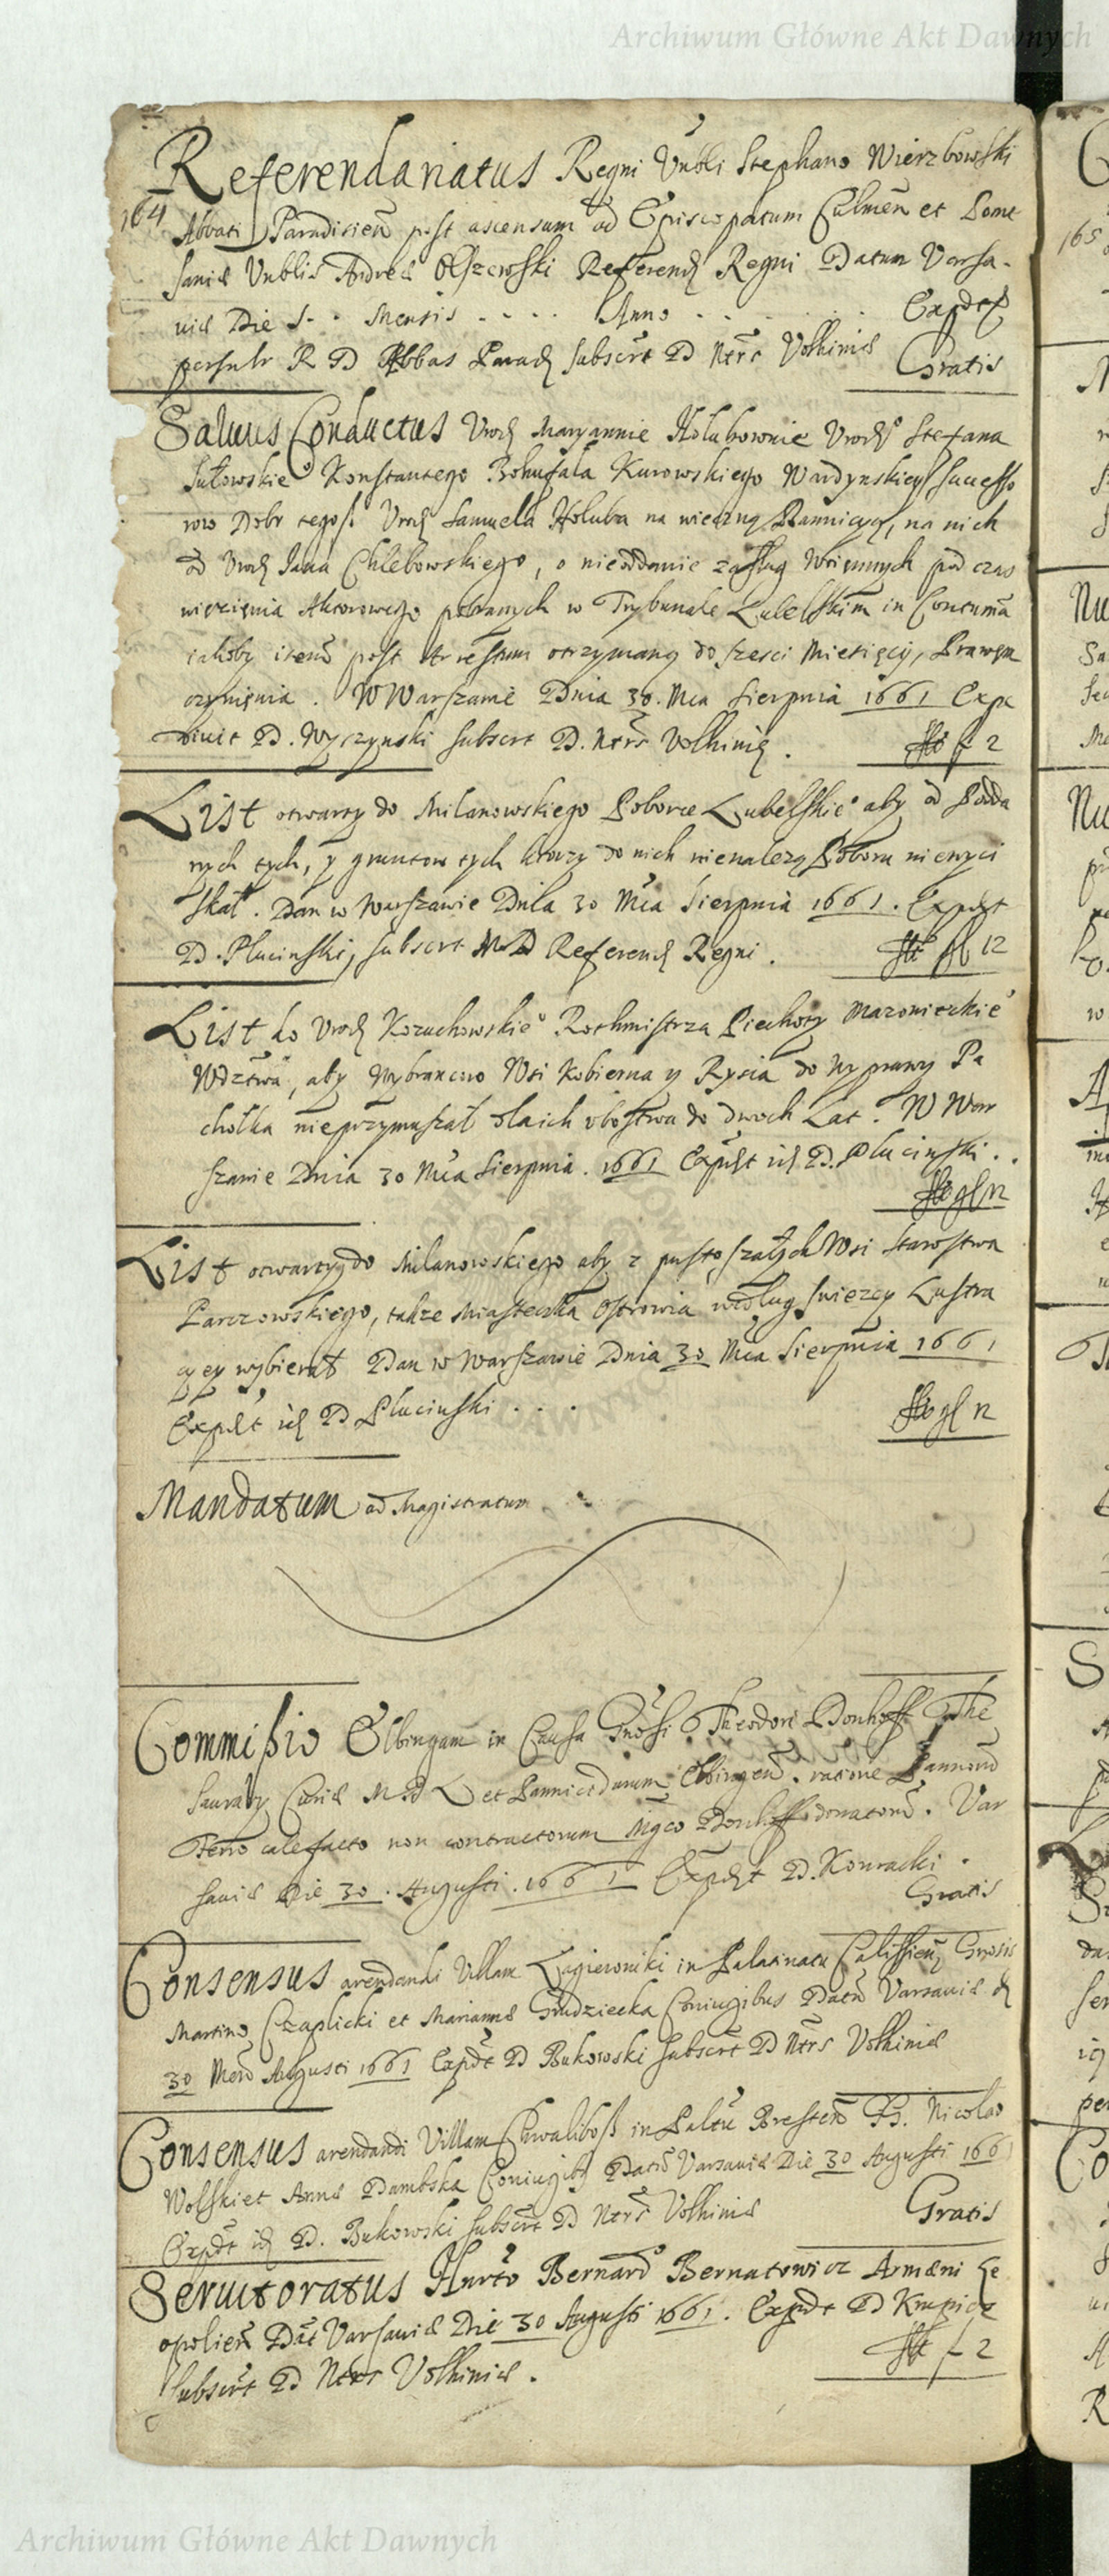 Archiwum Główne Akt Dawnych
Referendariatus Regni Vnbli Stephano Wierzbowski
164
Abbati Paradisien post ascensum ad Episcopatum Culmen et Pome
saniæ Vnblis Andreæ Olszewski Referend Regni Datum Varsa-
uiæ Die Mensis Anno Expdt
R D Abbas Parad subscrt D Ntrs Volhiniæ Gratis
Saluus Conductus Vrod Maryannie Hołubownie Stefana
Konstantego Bohufała Kurowskiego Wardynskiey Successo
row Dobr tegoß Vrod Samuela Hołuba na wieczną Bannicyą, na nich
od Vrod Jana Chlebowskiego, o nieoddanie zasług Woiennych pod czas
więzienia Aktorowego pobranych w Trybunale Lubelskim in Contuma
iakoby item post Arrestum otrzymaną do sześci Miesięcy, Prawem
czynienia. W Warszawie Dnia 30. Mca Sierpnia 1661 Expe
diuit D. Wyczynski subscrt D. Ntrs Volhiniæ. f 2
List otwarty do Milanowskiego Poborce Lubelskie° aby od Podda
nych tych, y gruntow tych ktorzy do nich nienalezą Poboru niewyci
skał. Dan w Warszawie Dnia 30 Mca Sierpnia 1661. Expdt
D. Plucinski, subscrt M D Referend Regni. 12
List do Vrod Kozuchowskie° Rothmistrza Piechoty Mazowieckie°
Wdztwa, aby Wybrancow Wsi Kobierna y Rysia do Wyprawy Pa
chołka nieprzymuszał dla ich vbostwa do dwoch Lat. W War
szawie Dnia 30 Mca Sierpnia. 1661 Expdt id D. Plucinski..
List otwarty do Milanowskiego aby z pustoszałych Wsi Starostwa
Parczowskiego, takze Miasteczka Ostrowia według swiezey Lustra
cyey wybierał Dan w Warszawie Dnia 30 Mca Sierpnia 1661
Expdt id D Plucinski...
Mandatum ad Magistratum
Commißio Elbingam in Causa Gnosi Theodori Donhoff The
saurarÿ Curiæ M D L et Pannicidarum Elbingen. ratione Pannorum
Ferro calefacto non contractorum Mgco Donhoff donatorum. Var
sauiæ Die 30. Augusti. 1661 Expdt D. Konracki.
Gratis
Consensus arendandi Villam Łagiewniki in Palatinatu Calissien Gnosis
Martino Czaplicki et Mariannæ Grudziecka Coniugibus Datum Varsauiæ d
30 Mens Augusti 1661 Expdt D Bukowski subscrt D Ntrs Volhiniæ
Consensus arendandi Villam Chwaliboß in Paltu Bresten G. Nicolao
Wolski et Annæ Dambska Coniugibs Datum Varsauiæ Die 30 Augusti 1661
Expdt id D. Bukowski subscrt D Ntrs Volhiniæ Gratis
Seruitoratus Bernard Bernatowicz Armæni Le
opolien Dat Varsauiæ Die 30 Augusti 1661. Expdt D Krupicz
subscrt D Ntrs Volhiniæ. f 2
Archiwum Główne Akt Dawnych